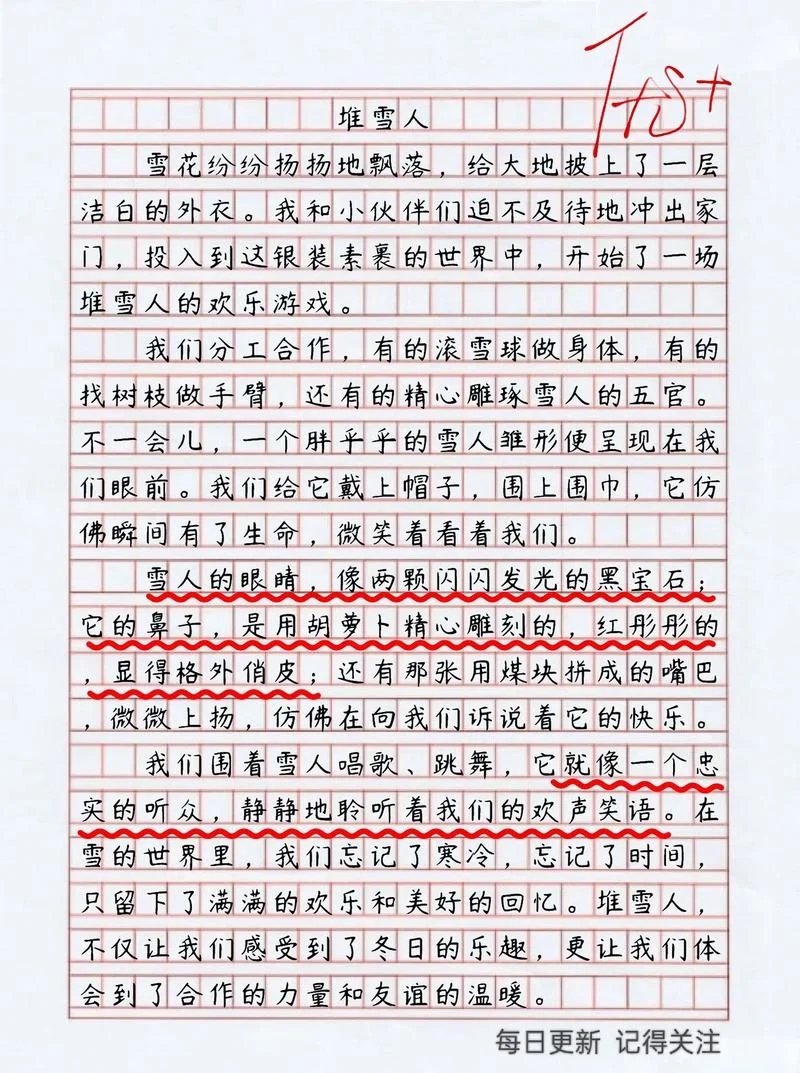 堆雪人
雪花纷纷扬扬地飘落，给大地披上了一层
洁白的外衣。我和小伙伴们迫不及待地冲出家
门，投入到这银装素裹的世界中，开始了一场
堆雪人的欢乐游戏。
我们分工合作，有的滚雪球做身体，有的
找树枝做手臂，还有的精心雕琢雪人的五官。
不一会儿，一个胖乎乎的雪人雏形便呈现在我
们眼前。我们给它戴上帽子，围上围巾，它仿
佛瞬间有了生命，微笑着看着我们。
雪人的眼睛，像两颗闪闪发光的黑宝石；
它的鼻子，是用胡萝卜精心雕刻的，红彤彤的
，显得格外俏皮；还有那张用煤块拼成的嘴巴
，微微上扬，仿佛在向我们诉说着它的快乐。
我们围着雪人唱歌、跳舞，它就像一个忠
实的听众，静静地聆听着我们的欢声笑语。在
雪的世界里，我们忘记了寒冷，忘记了时间，
只留下了满满的欢乐和美好的回忆。堆雪人，
不仅让我们感受到了冬日的乐趣，更让我们体
会到了合作的力量和友谊的温暖。
每日更新 记得关注